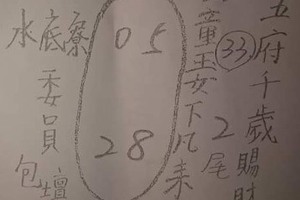 五府千歲賜財
33
2尾
董玉女下凡来
05
28
水底寮
委員
包壇